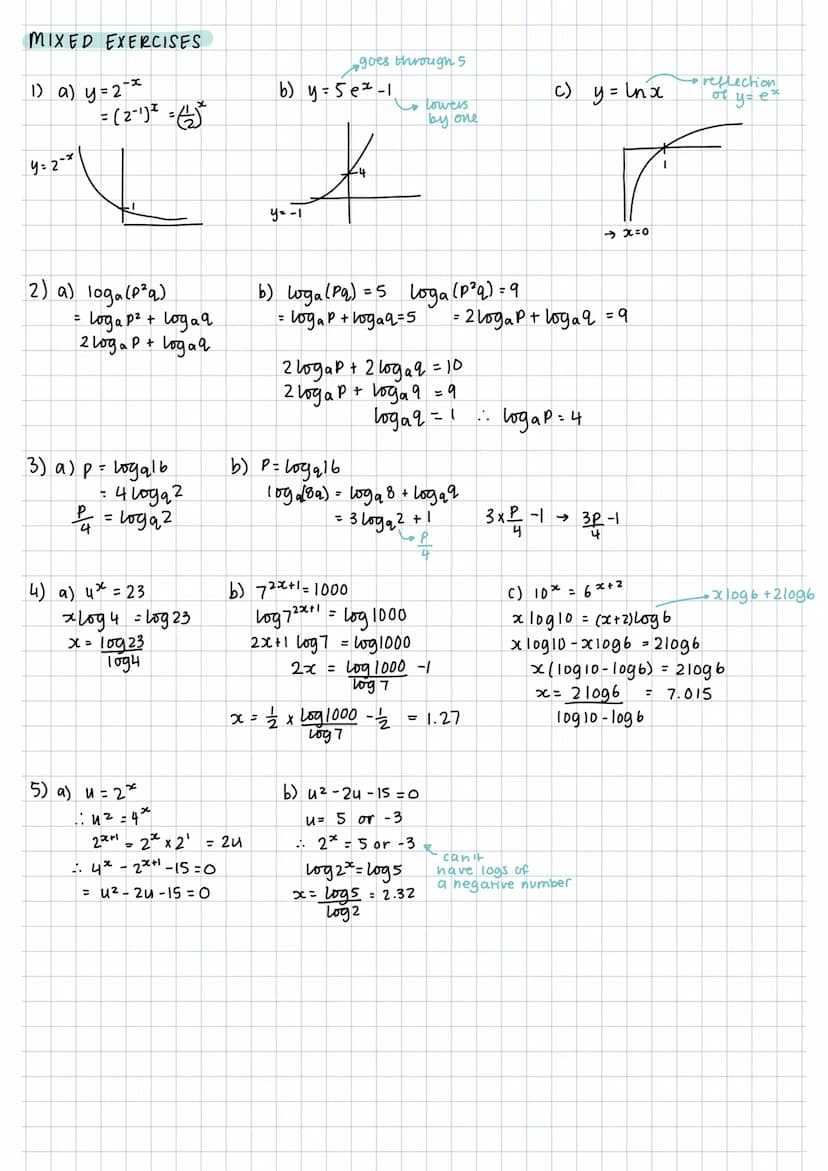 MIXED EXERCISES
1) a) y = 2⁻ˣ
= (2⁻¹)ˣ = (1/2)ˣ
y = 2⁻ˣ
1
b) y = 5eˣ - 1
goes through 5
lowers
by one
4
y = -1
c) y = ln x
reflection
of y = eˣ
1
→ x=0
2) a) logₐ(p²q)
= logₐp² + logₐq
2logₐp + logₐq
b) logₐ(pq) = 5 logₐ(p²q) = 9
= logₐp + logₐq = 5 = 2logₐp + logₐq = 9
2logₐp + 2logₐq = 10
2logₐp + logₐq = 9
logₐq = 1 ∴ logₐp = 4
3) a) p = log_q16
= 4log_q2
p/4 = log_q2
b) p = log_q16
log_q(8q) = log_q8 + log_qq
= 3log_q2 + 1 3 × p/4 - 1 → 3p/4 - 1
p/4
4) a) 4ˣ = 23
x log 4 = log 23
x = log 23 / log 4
b) 7²ˣ⁺¹ = 1000
log 7²ˣ⁺¹ = log 1000
2x+1 log 7 = log 1000
2x = log 1000 / log 7 - 1
x = 1/2 × log 1000 / log 7 - 1/2 = 1.27
c) 10ˣ = 6ˣ⁺²
x log 6 + 2 log 6
x log 10 = (x+2) log 6
x log 10 - x log 6 = 2 log 6
x (log 10 - log 6) = 2 log 6
x = 2 log 6 / log 10 - log 6 = 7.015
5) a) u = 2ˣ
∴ u² = 4ˣ
2ˣ⁺¹ = 2ˣ × 2¹ = 2u
∴ 4ˣ - 2ˣ⁺¹ - 15 = 0
= u² - 2u - 15 = 0
b) u² - 2u - 15 = 0
u = 5 or -3
∴ 2ˣ = 5 or -3
can't
have logs of
a negative number
log 2ˣ = log 5
x = log 5 / log 2 = 2.32